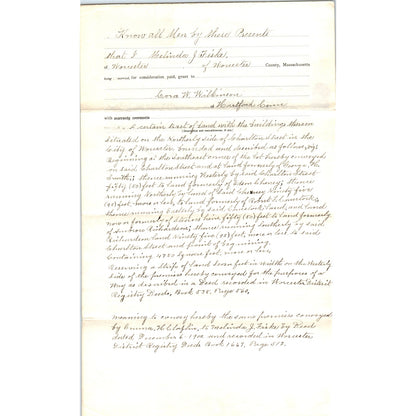 Know all Men by these Presents
that I Melinda J. Fiske,
of Worcester County, Massachusetts
for consideration paid, grant to
Cora W. Wilkinson
Hartford Conn
with warranty covenants
A certain tract of Land with the buildings thereon
situated on the Northerly side of Charlton Street in the
City of Worcester bounded and described as follows, viz:
Beginning at the Southeast corner of the lot hereby conveyed
on said Charlton Street and at Land formerly of George
Smith; thence running Westerly by said Charlton Street
fifty (50) feet to land formerly of Eden Cheney; thence
running Northerly by Land of said Cheney Ninety five
(95) feet, more or less, to land formerly of
thence running Easterly by said land, and Land
now or formerly of fifty (50) feet to Land formerly
of Richardson; thence running Southerly by said
Richardson Land Ninety five (95) feet, more or less to said
Charlton Street and point of beginning.
Containing 4750 square feet, more or less.
Reserving a Strip of Land seven feet in width on the Westerly
side of the premises hereby conveyed for the purposes of a
Way as described in a Deed recorded in Worcester District
Registry Deeds, Book 575, Page 560.
Meaning to convey hereby the same premises conveyed
by Emma H. Claflin, to Melinda J. Fiske by Deed
dated December 6 1900 and recorded in Worcester
District Registry Deeds Book 1667, Page 312.